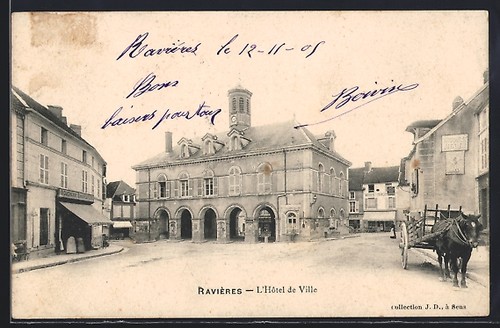 Ravières le 12-11-05
Bons
baisers pour tous
Boivin
RAVIÈRES — L'Hôtel de Ville
collection J. D., à Sens